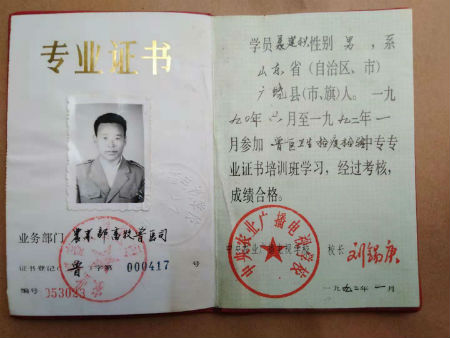 专业证书
业务部门 农业部畜牧兽医司
证书登记( 兽 )字第 000417 号
编号 053093
学员 性别 男 ,系
山东 省(自治区、市)
广饶 县(市、旗)人。一九
九〇年 月至一九九二年 一
月参加 兽医卫生检疫检验 中专专
业证书培训班学习,经过考核,
成绩合格。
中央农业广播电视学校
校长 刘锡庚
一九九二年 一 月